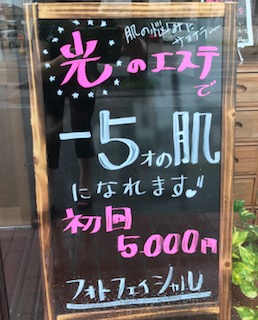 肌の
光のエステ
で
-5才の肌
になれます
初回
5,000円
フォトフェイシャル